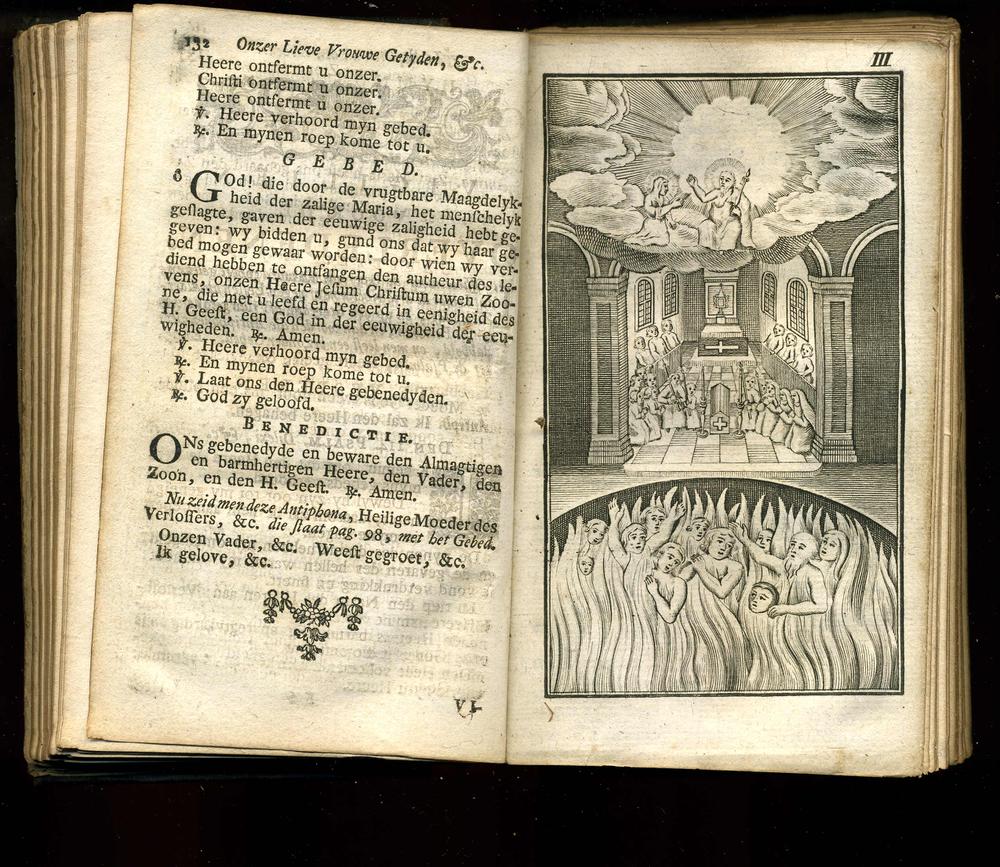 132 Onzer Lieve Vrouwe Getyden, &c.
Heere ontfermt u onzer.
Christi ontfermt u onzer.
Heere ontfermt u onzer.
℣. Heere verhoord myn gebed.
℟. En mynen roep kome tot u.
GEBED.
GOd! die door de vrugtbare Maagdelyk-
heid der zalige Maria, het menſchelyk
geſlagte, gaven der eeuwige zaligheid hebt ge-
geven: wy bidden u, gund ons dat wy haar ge-
bed mogen gewaar worden: door wien wy ver-
diend hebben te ontfangen den autheur des le-
vens, onzen Heere Jeſum Chriſtum uwen Zoo-
ne, die met u leefd en regeerd in eenigheid des
H. Geeſt, een God in der eeuwigheid der eeu-
wigheden. ℟. Amen.
℣. Heere verhoord myn gebed.
℟. En mynen roep kome tot u.
℣. Laat ons den Heere gebenedyden.
℟. God zy geloofd.
BENEDICTIE.
ONs gebenedyde en beware den Almagtigen
en barmhertigen Heere, den Vader, den
Zoon, en den H. Geeſt. ℟. Amen.
Nu zeid men deze Antiphona, Heilige Moeder des
Verloſſers, &c. die ſtaat pag. 98, met het Gebed.
Onzen Vader, &c. Weeſt gegroet, &c.
Ik gelove, &c.
III